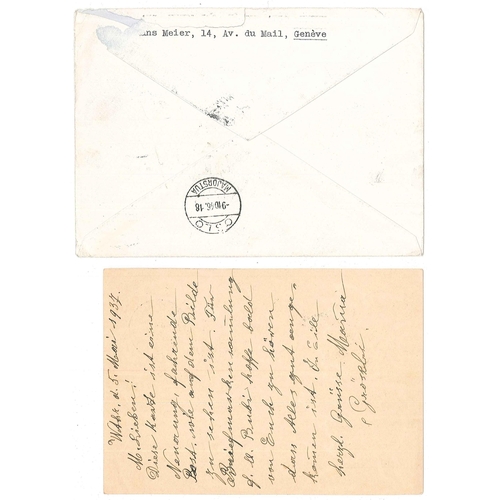 ans Meier, 14, Av. du Mail, Genève
OSLO
-9.10.46.-18
MAJORSTUA
5. Mai 1937.
M. Lieben!
Diese Karte ist eine
Neuerung, fahrende
Post, wie auf dem Bilde
zu sehen ist. Für
Briefmarkensammlung
Bubi hoffe bald
von Euch zu hören
dass Alles gut ange-
kommen ist. In Eile
herzl. Grüsse Mama